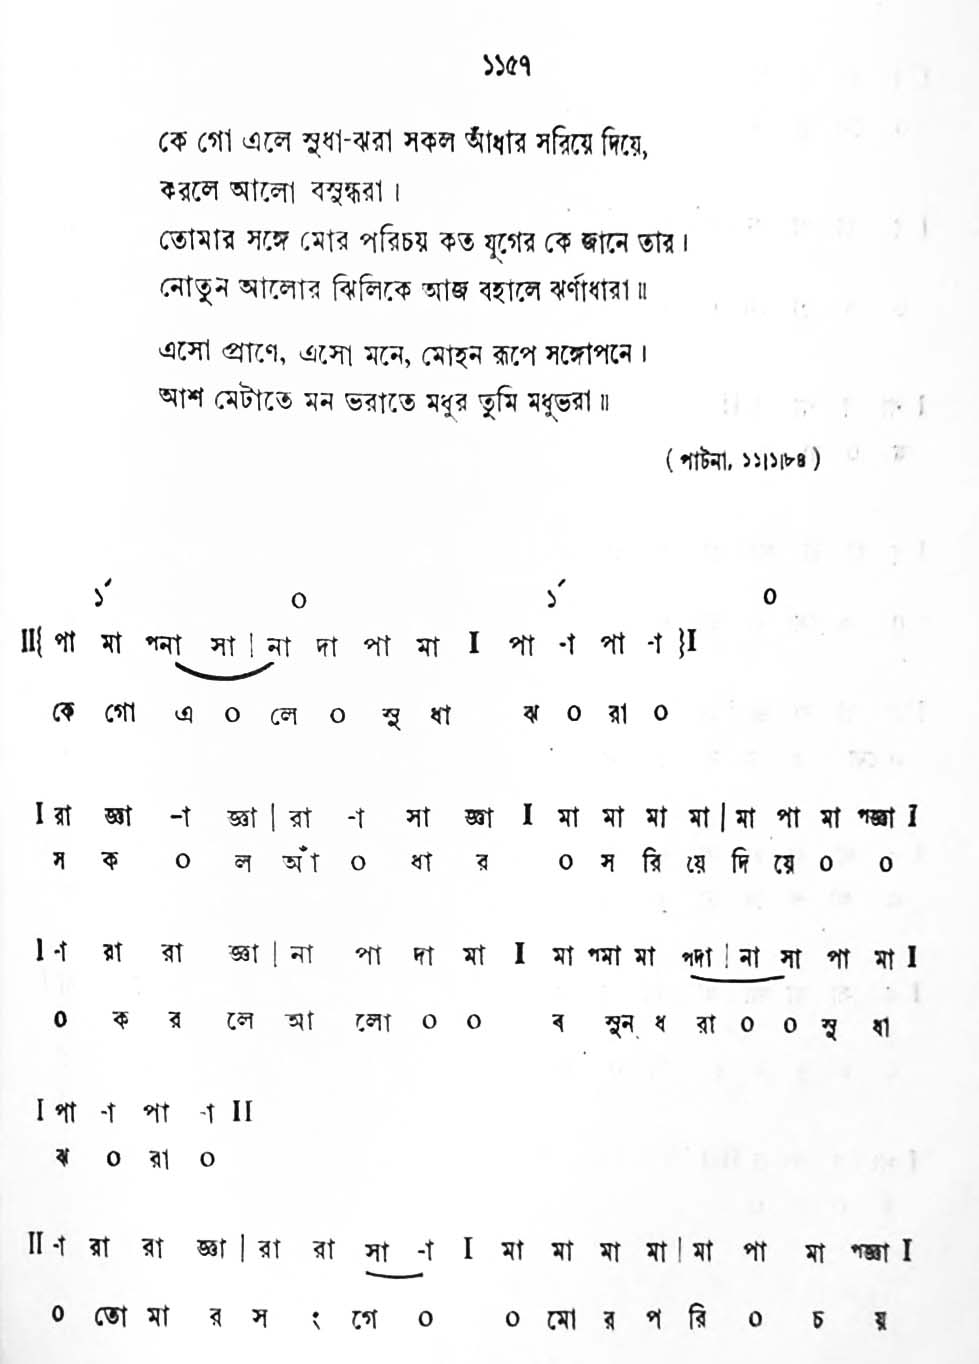 ১১৫৭
কে গো এলে সুধা-ঝরা সকল আঁধার সরিয়ে দিয়ে,
করলে আলো বসুন্ধরা ।
তোমার সঙ্গে মোর পরিচয় কত যুগের কে জানে তার ।
নোতুন আলোর ঝিলিকে আজ বহালে ঝর্ণাধারা ॥
এসো প্রাণে, এসো মনে, মোহন রূপে সঙ্গোপনে ।
আশ মেটাতে মন ভরাতে মধুর তুমি মধুভরা ॥
( পাটনা, ১১।১।৮৪ )
১´ ০ ১´ ০
II{ পা মা পনা সা | না দা পা মা I পা -া পা -া }I
কে গো এ ০ লে ০ সু ধা ঝ ০ রা ০
I রা জ্ঞা -া জ্ঞা | রা -া সা জ্ঞা I মা মা মা মা | মা পা মা পজ্ঞা I
স ক ০ ল আঁ ০ ধা র ০ স রি য়ে দি য়ে ০ ০
I -া রা রা জ্ঞা | না পা দা মা I মা পমা মা পদা | না সা পা মা I
০ ক র লে আ লো ০ ০ ব সুন্ ধ রা ০ ০ সু ধা
I পা -া পা -া II
ঝ ০ রা ০
II -া রা রা জ্ঞা | রা রা সা -া I মা মা মা মা | মা পা মা পজ্ঞা I
০ তো মা র স ং গে ০ ০ মো র প রি ০ চ য়